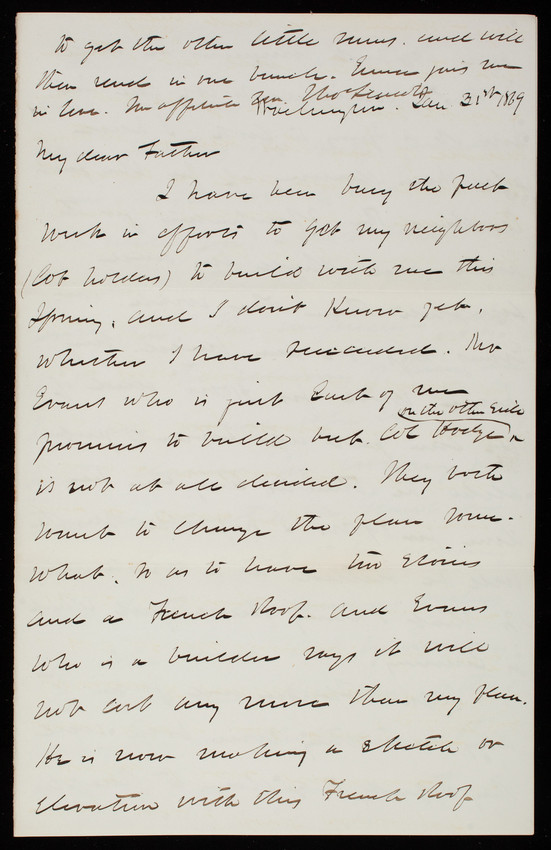 to get the other little sums. and will
then send in one bunch. Emma joins me
in love. Yr affectionate Son Thos Lincoln
Washington. Jan 31st 1869
My dear Father
I have been busy the past
week in efforts to get my neighbors
(lot holders) to build with me this
Spring. and I don't know yet.
whether I have succeeded. Mr
Evans who is just East of me
on the other side
promises to build but Col Hodge
is not at all decided. They both
want to change the plan some-
what. so as to have two stories
and a French Roof. and Evans
who is a builder says it will
not cost any more than my plan.
He is now making a sketch or
elevation with this French Roof